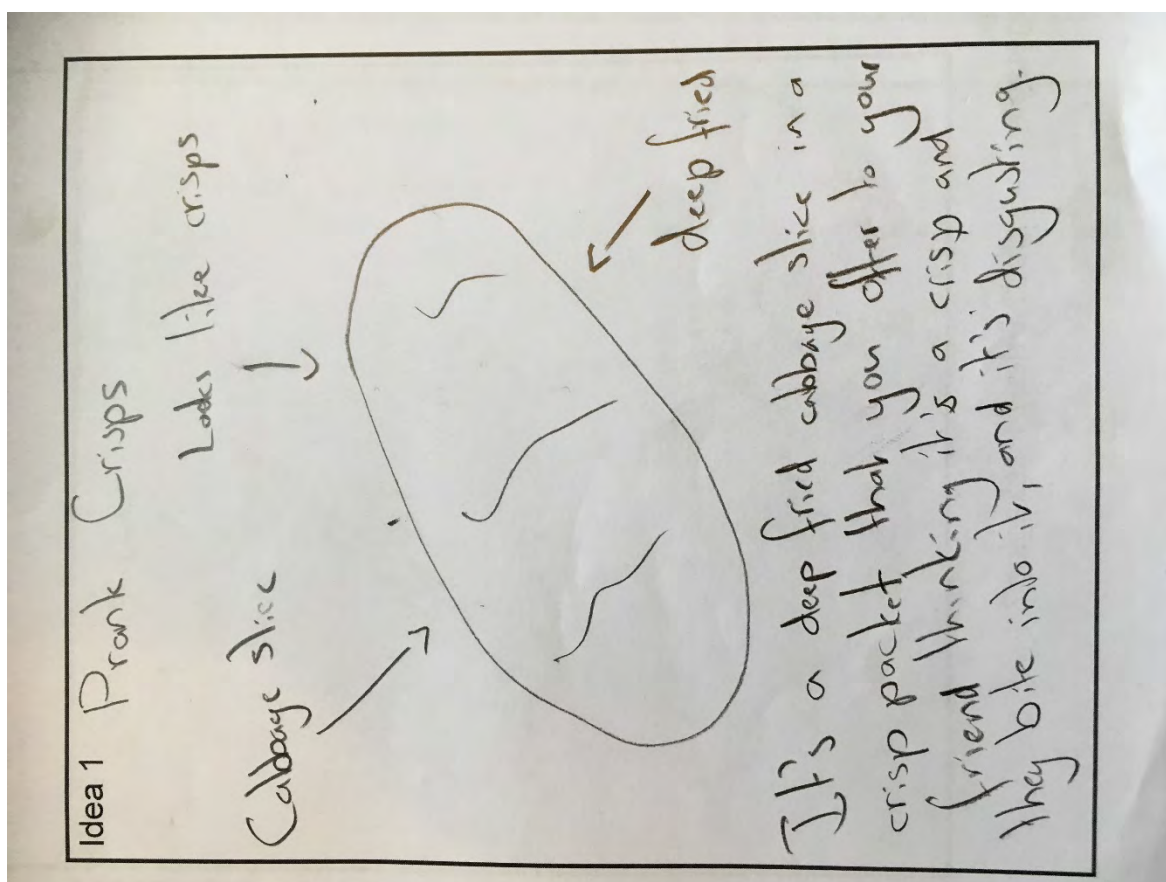 Idea 1 Prank Crisps
Looks like crisps
Cabbage slice
deep fried
It's a deep fried cabbage slice in a
crisp packet that you offer to your
friend thinking it's a crisp and
they bite into it, and it's disgusting.